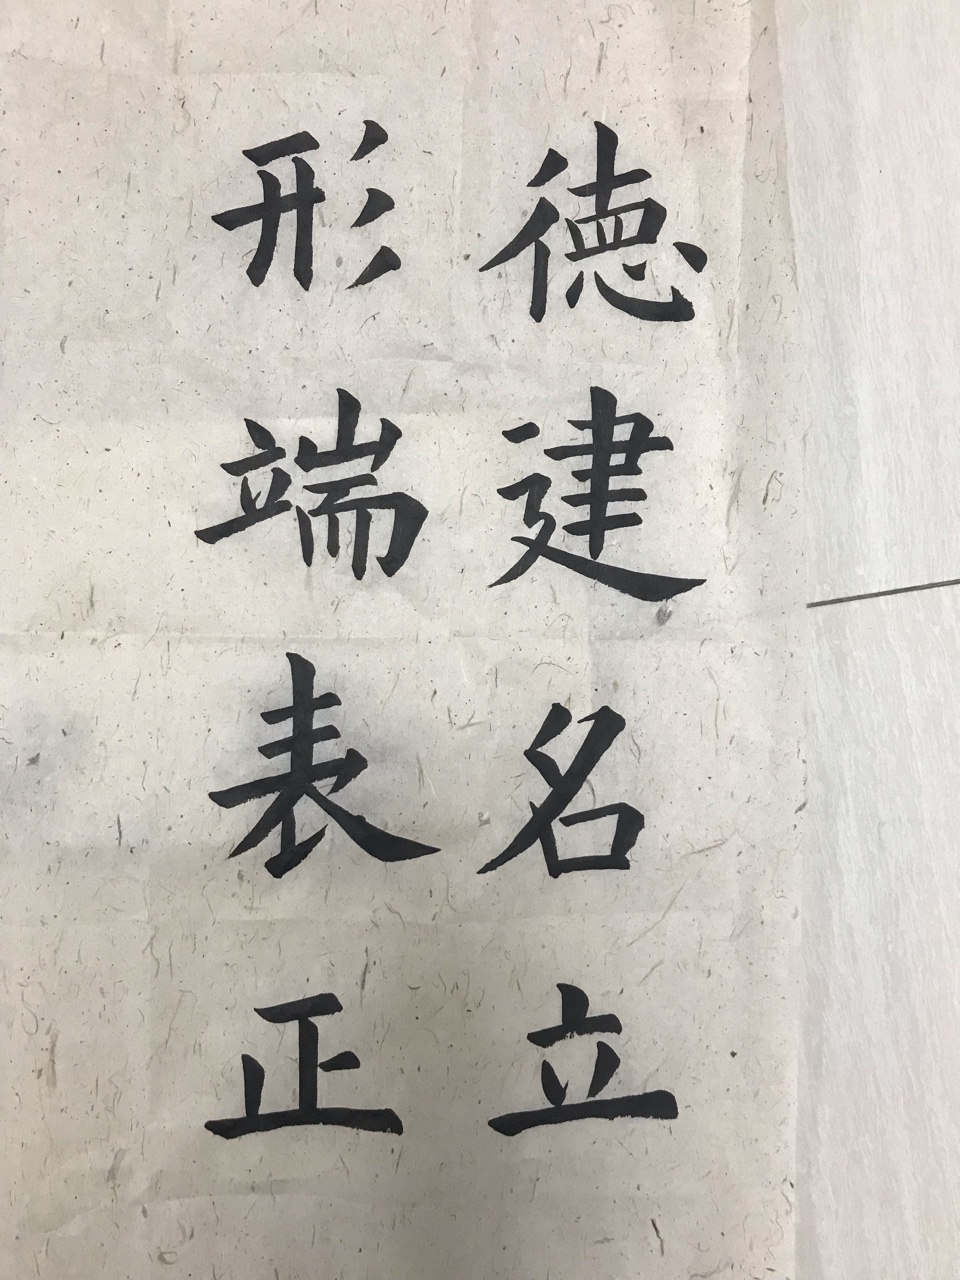 徳建名立
形端表正